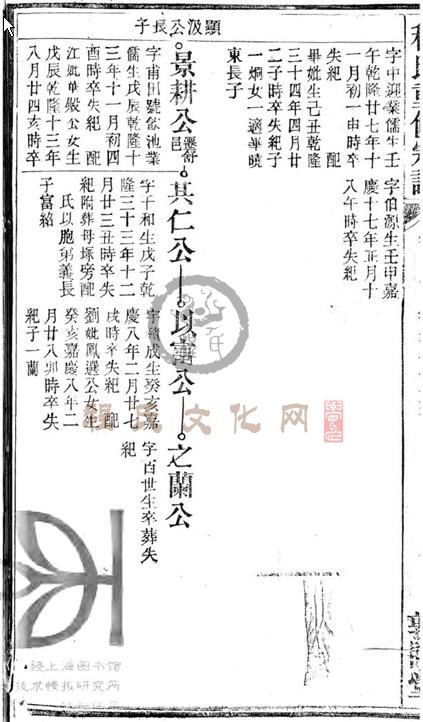 字中迎業儒生壬
午乾隆廿七年十
一月初一申時
失紀 配
畢妣生己丑乾隆
三十四年四月廿
二子時卒失紀子
一炯女一適畢曉
東長子
字伯源生壬申嘉
慶十七年正月十
八午時卒失紀
顯汲公長子
景耕公 遷舒邑 其仁公 以富公 之蘭公
字甫田號池業
儒生戊辰乾隆十
三年十一月初四
酉時卒失紀 配
江妣華嚴公女生
戊辰乾隆十三年
八月廿四亥時卒
字千和生戊子乾
隆三十三年十二
月廿三丑時卒失
紀附葬母塚旁配
氏以胞弟義長
子富紹
字成生癸亥嘉
慶八年二月廿七
戌時卒失紀 配
劉妣鳳選公女生
癸亥嘉慶八年二
月廿八卯時卒失
紀子一蘭
字百世生卒葬失
紀
程氏文化网
经上海图书馆
技术情报研究所